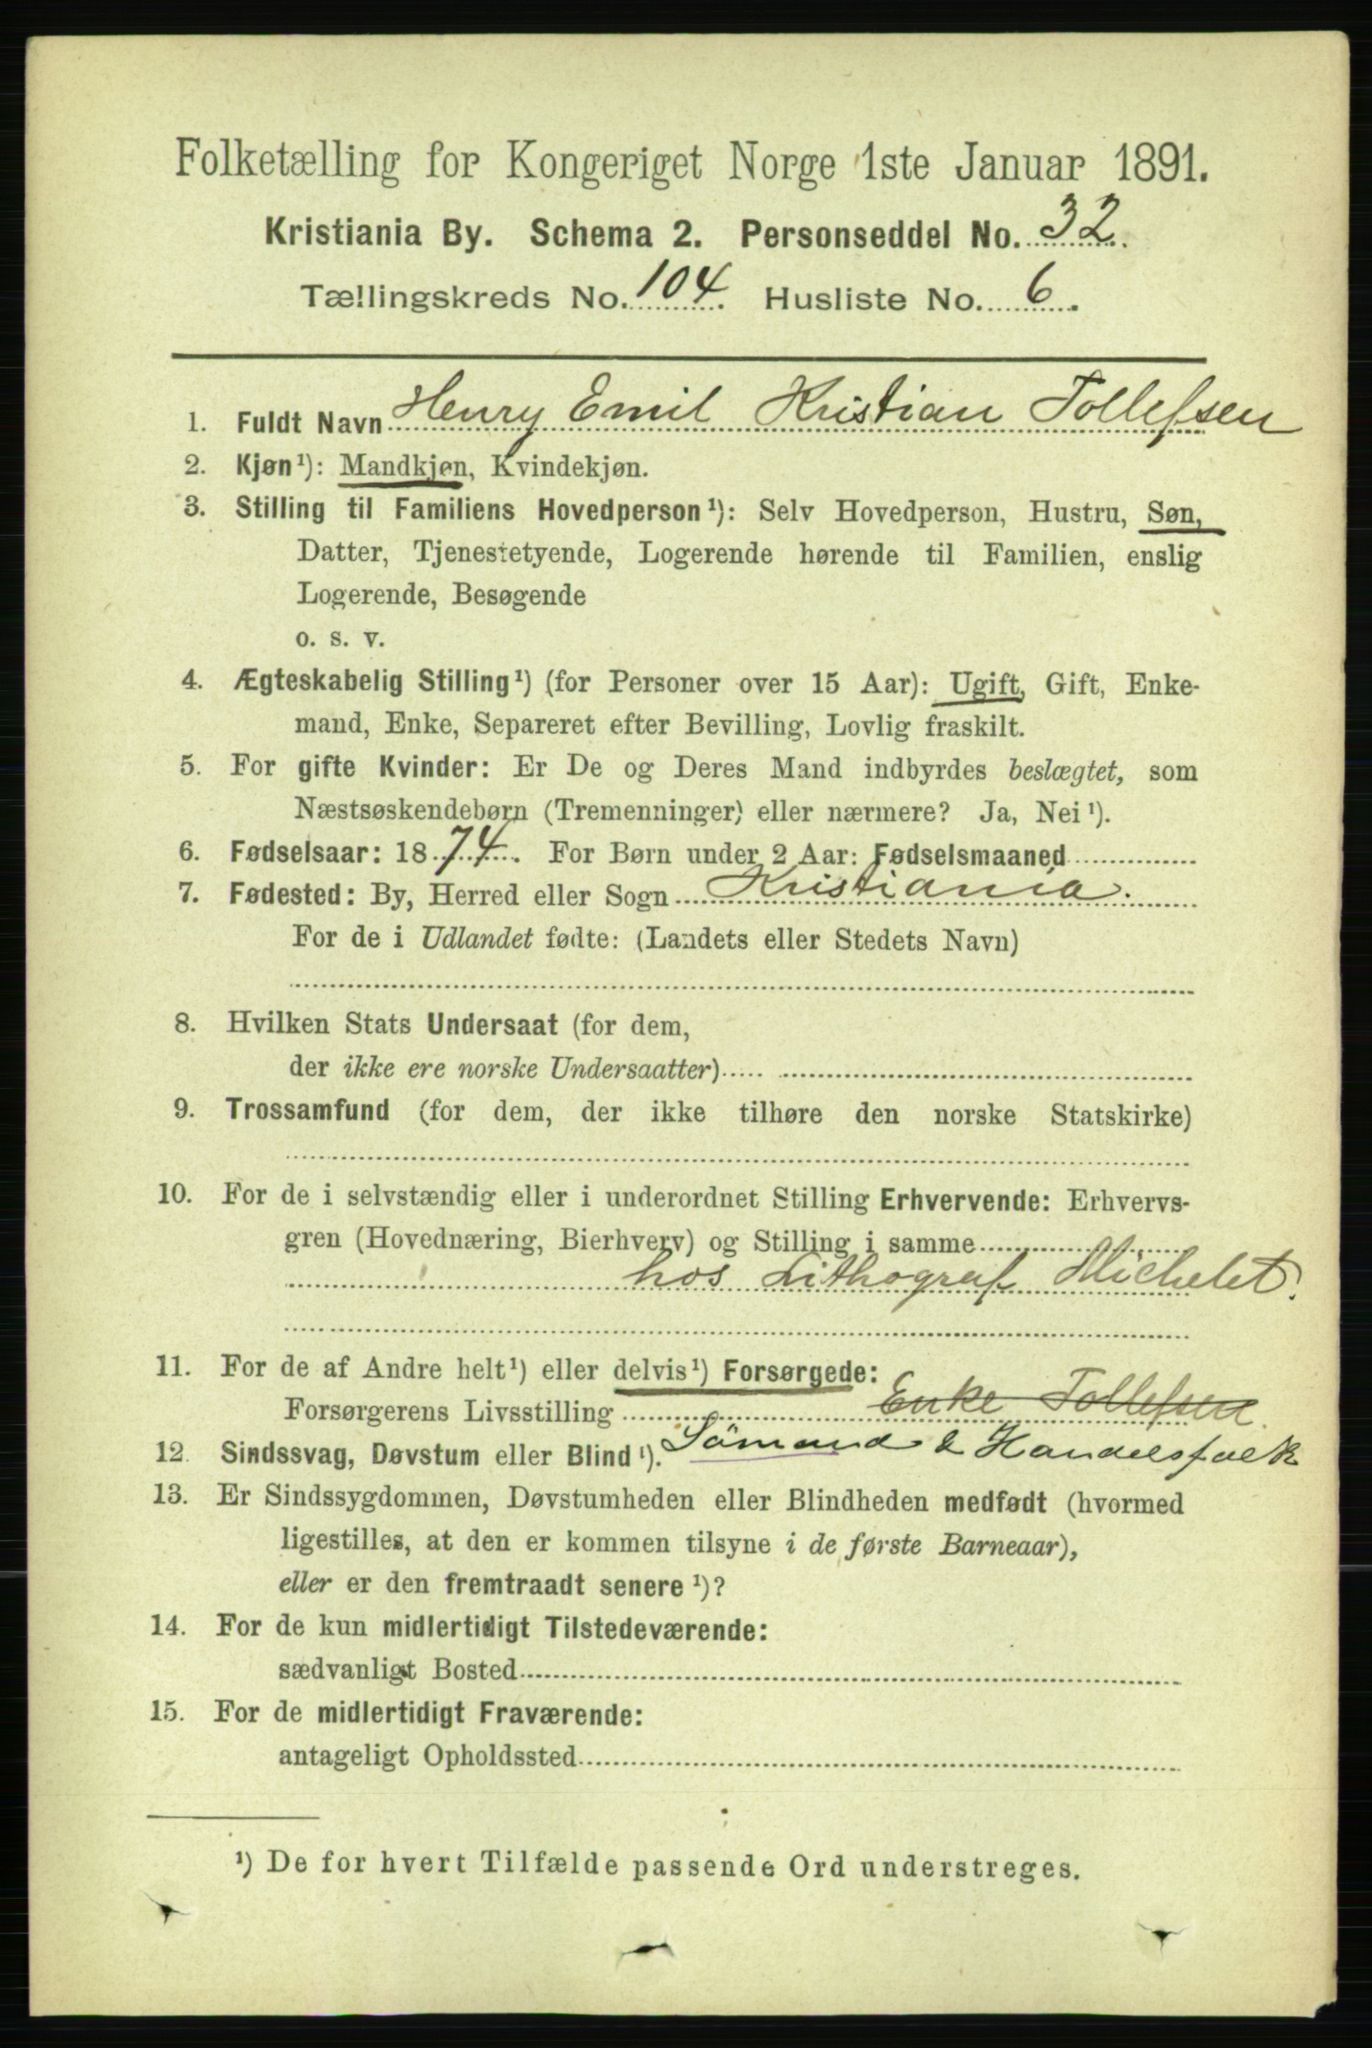 Folketælling for Kongeriget Norge 1ste Januar 1891.
Kristiania By. Schema 2. Personseddel No. 32.
Tællingskreds No. 104. Husliste No. 6.
1. Fuldt Navn Henry Emil Kristian Tollefsen
2. Kjøn¹): Mandkjøn, Kvindekjøn.
3. Stilling til Familiens Hovedperson¹): Selv Hovedperson, Hustru, Søn,
Datter, Tjenestetyende, Logerende hørende til Familien, enslig
Logerende, Besøgende
o. s. v.
4. Ægteskabelig Stilling¹) (for Personer over 15 Aar): Ugift, Gift, Enke-
mand, Enke, Separeret efter Bevilling, Lovlig fraskilt.
5. For gifte Kvinder: Er De og Deres Mand indbyrdes beslægtet, som
Næstsøskendebørn (Tremenninger) eller nærmere? Ja, Nei¹).
6. Fødselsaar: 1874. For Børn under 2 Aar: Fødselsmaaned
7. Fødested: By, Herred eller Sogn Kristiania.
For de i Udlandet fødte: (Landets eller Stedets Navn)
8. Hvilken Stats Undersaat (for dem,
der ikke ere norske Undersaatter)
9. Trossamfund (for dem, der ikke tilhøre den norske Statskirke)
10. For de i selvstændig eller i underordnet Stilling Erhvervende: Erhvervs-
gren (Hovednæring, Bierhverv) og Stilling i samme
hos Lithograf Michelet.
11. For de af Andre helt¹) eller delvis¹) Forsørgede:
Forsørgerens Livsstilling Enke Tollefsen.
12. Sindssvag, Døvstum eller Blind¹). Sömand & Handelsfolk
13. Er Sindssygdommen, Døvstumheden eller Blindheden medfødt (hvormed
ligestilles, at den er kommen tilsyne i de første Barneaar),
eller er den fremtraadt senere¹)?
14. For de kun midlertidigt Tilstedeværende:
sædvanligt Bosted
15. For de midlertidigt Fraværende:
antageligt Opholdssted
¹) De for hvert Tilfælde passende Ord understreges.